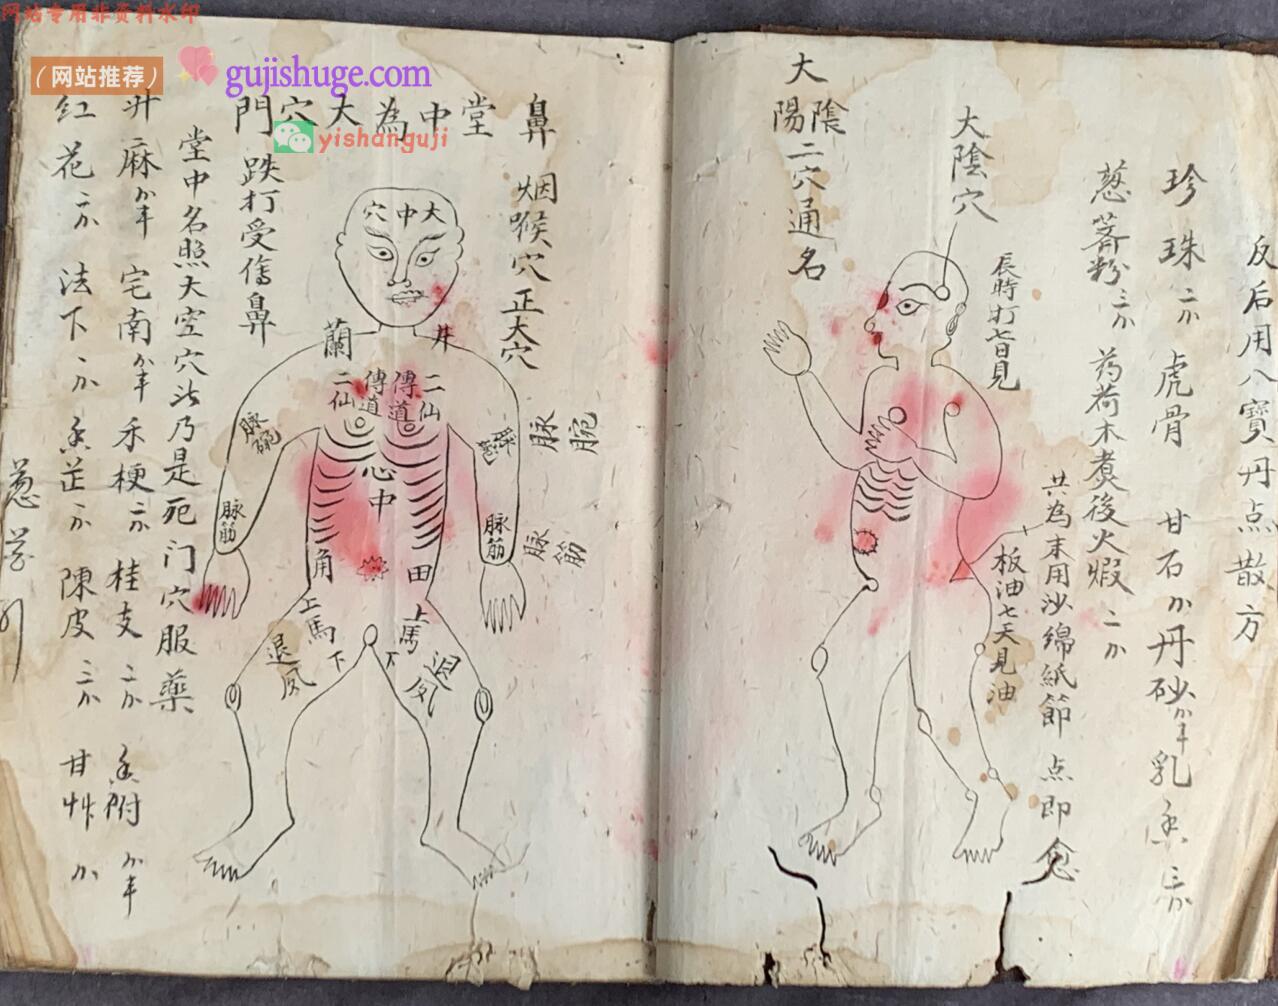 网站专用非资料水印
（网站推荐）
gujishuge.com
yishanguji
反后用八寶丹点散方
珍珠二分 虎骨 甘石分 丹砂分半 乳香三分
葱蒡粉三分 药荷木煮後火煅二分
共為末用沙綿紙節点即愈
辰時打七日見
板油七天見油
大陰穴
大
陽陰
二穴通名
鼻
烟喉穴正大穴
堂中為大穴門
跌打受傷鼻
堂中名照大空穴此乃是死门穴服藥
升麻分半 宅南分半 禾梗二分 桂支二分 香附分半
红花二分 法下二分 香芷分 陳皮三分 甘艸分
大中穴
蘭
井
二仙
傳道
傳道
二仙
心中
脉腕
脉腕
脉筋
脉筋
脉筋
角
田
上馬下
上馬下
退风
退风